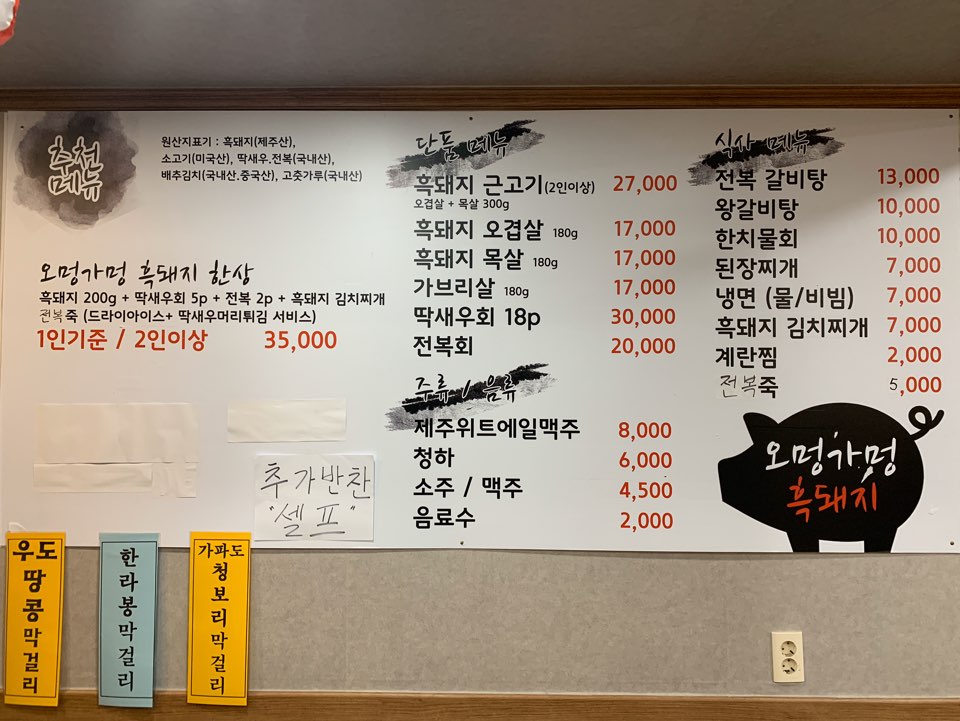 추천
메뉴
원산지표기 : 흑돼지(제주산),
소고기(미국산), 딱새우.전복(국내산),
배추김치(국내산.중국산), 고춧가루(국내산)
오멍가멍 흑돼지 한상
흑돼지 200g + 딱새우회 5p + 전복 2p + 흑돼지 김치찌개
전복죽 (드라이아이스+ 딱새우머리튀김 서비스)
1인기준 / 2인이상 35,000
추가반찬
"셀프"
단품 메뉴
흑돼지 근고기(2인이상) 27,000
오겹살 + 목살 300g
흑돼지 오겹살 180g 17,000
흑돼지 목살 180g 17,000
가브리살 180g 17,000
딱새우회 18p 30,000
전복회 20,000
주류 / 음류
제주위트에일맥주 8,000
청하 6,000
소주 / 맥주 4,500
음료수 2,000
식사 메뉴
전복 갈비탕 13,000
왕갈비탕 10,000
한치물회 10,000
된장찌개 7,000
냉면 (물/비빔) 7,000
흑돼지 김치찌개 7,000
계란찜 2,000
전복죽 5,000
오멍가멍
흑돼지
우도땅콩막걸리
한라봉막걸리
가파도청보리막걸리